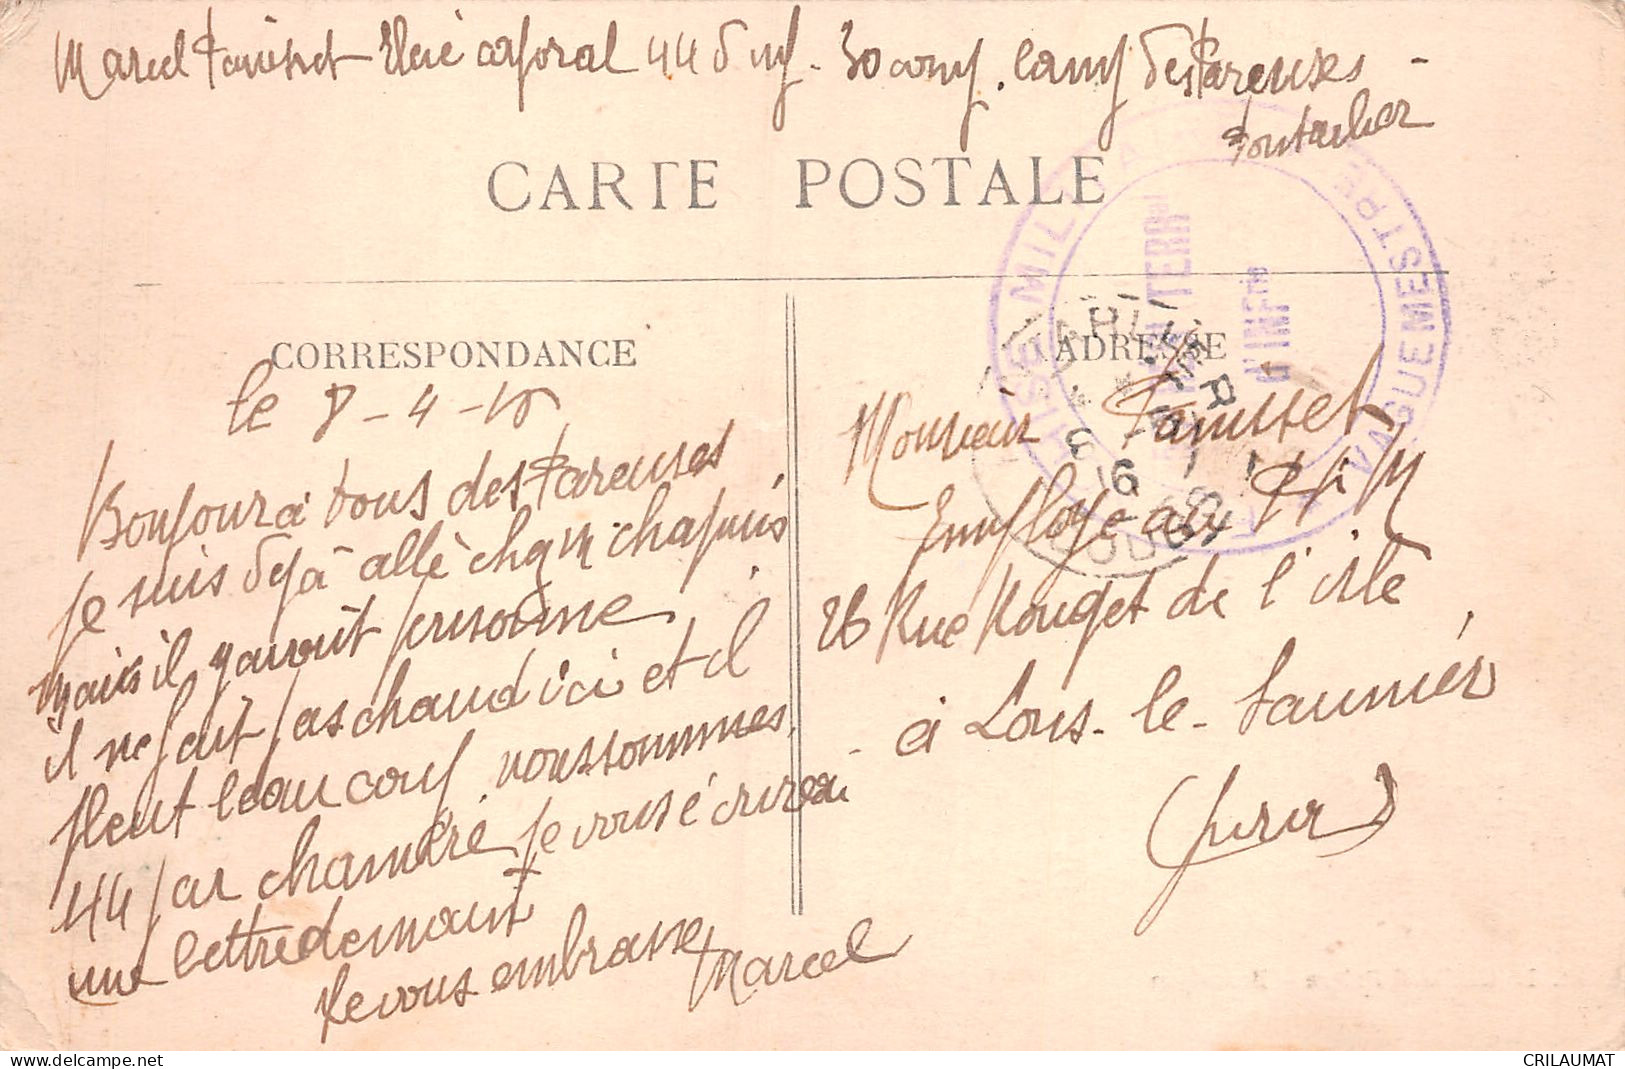 Marcel Paillset Elevé caporal 44 d inf - 30 comp. camp des Pareuses -
Pontarlier
CARTE POSTALE
CORRESPONDANCE
ADRESSE
MILITAIRE
VAGUEMESTRE
TERRal
d'INFrie
PONTARLIER
DOUBS
le 8-4-15
Bonjour à tous des Pareuses
je suis déjà allé chez M chapuis
mais il y avait personne.
il ne fait pas chaud ici et il
pleut beaucoup nous sommes
44 par chambre je vous écrirai
une lettre demain
Je vous embrasse Marcel
Monsieur Paillset
Employé au PLM
26 Rue Rouget de l'isle
à Lons-le-Saunier
(Jura)
www.delcampe.net
CRILAUMAT